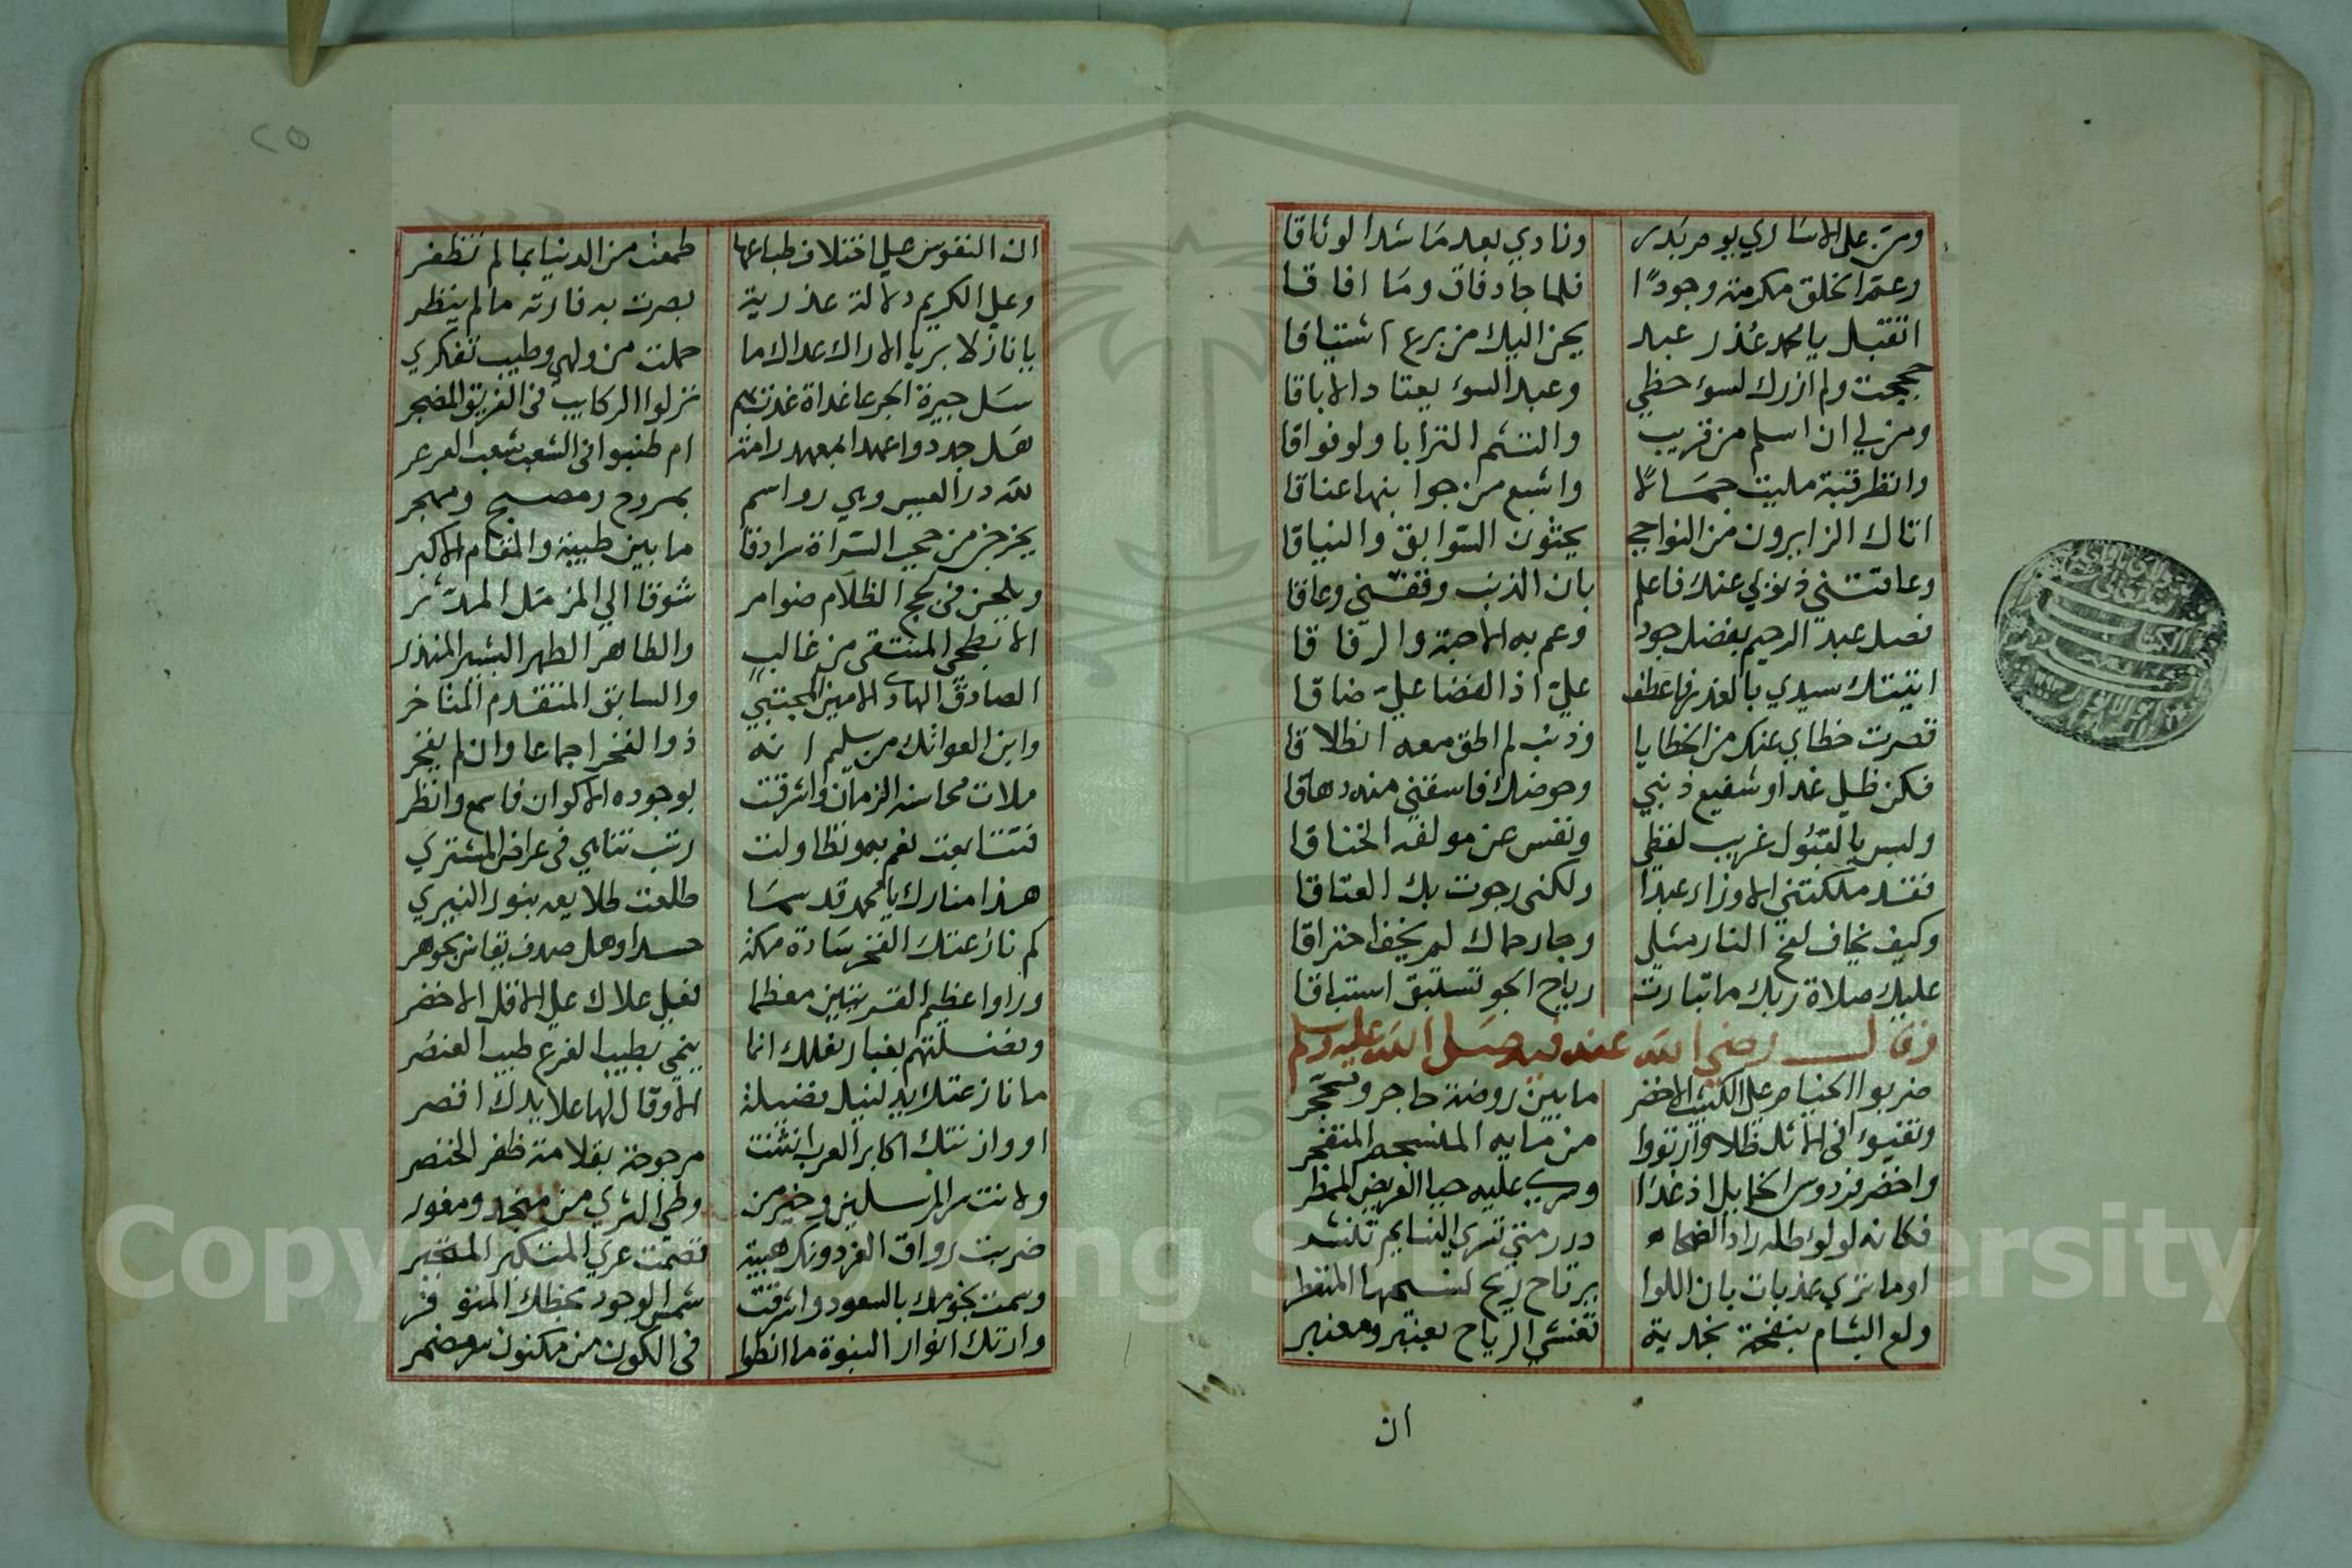 ومن على الاساري يوم بدر ونادي بعد ما شد الوثاقا
وعم الخلق مكرمة وجودًا فلما جاد فاق وما افاقا
اتقبل يا محمد عذر عبد يحن اليك من برع اشتياقا
حججت ولم ازرك لسوء حظي وعبد السوء يعتاد الاباقا
ومن لي ان اسلم من قريب والتثم الترابا ولو فواقا
وانظر قبة مليت جمالًا واشبع من جوابنها عناقا
اتاك الزايرون من النواحي يحثون السوابق والنياقا
وعاقتني ذنوبي عنك فاعلم بان الذنب وقفني وعاقا
فصل عبد الرحيم بفضل جود وعم به الاحبة والرفاقا
اتيتك سيدي بالعذر فاعطف علي اذ الفضا علي ضاقا
قصرت خطاي عنكم من الخطايا وذنب لم اطق معه انطلاقا
فكن ظلي غدا وشفيع ذنبي وحوضك فاسقني منه دهاقا
ولبس بالقبول غريب لفظي ونفس عن مولفه الخناقا
فقد ملكتني الاوزار عبدا ولكني رجوت بك العتاقا
وكيف يخاف لفح النار مثلي وجار حماك لم يخف احتراقا
عليك صلاة ربك ما تبارت رياح الجو تستبق استباقا
وقال رضي الله عنه فيه صلى الله عليه وسلم
ضربوا الخيام على الكثيب الاخضر ما بين روضة حاجر ومحجر
وتفيوا في الاثل ظلا وارتووا من مايه المتفجر
واخضر فردوس الخمايل اذ غدا وسرى عليه حيا العريض الممطر
فكانه لولو طله راد الضحاء درر متى تسري النسايم تنشر
او ما تري عذبات بان اللوا يرتاح ريح نسيمها المتفطر
ولع البشام بنفحة نجدية تغشى الرياح بعنبر ومعنبر
ان
ان النفوس على اختلاف طباعها طمعت من الدنيا بما لم تظفر
وعلى الكريم دلالة عذرية بصرت به فارته ما لم ينظر
يا نازلا بربا الاراك عداك ما حملت من ولهي وطيب تفكري
سل جيرة الجرعا غداة غدت بهم نزلوا الركايب في الفريق المضجر
هل جددوا عهدا بمعهد رامة ام طنبوا في الشعب شعب العرعر
لله در العيس وهي رواسم بمروح ومصبح ومهجر
يخرجن من حجب السراة سرادقا ما بين طيبة والمقام الاكبر
ويلجن في لجج الظلام ضوامر شوقا الى المزمل المدثر
الابطحي المنتقى من غالب والطاهر الطهر البشير المنذر
الصادق الهادي الامين المجتبي والسابق المتقدم المتاخر
وابن العواتك من سليم انه ذو الفخر اجماعا وان لم يفخر
ملات محاسنه الزمان واشرقت بوجوده الاكوان فاسمع وانظر
فتتابعت نعم بهم وتطاولت رتب تناهي في عراض المشتري
هذا منارك يا محمد قد سما طلعت طلايعه بنور النيري
كم نازعتك الفخر سادة مكة حسدا وهل صدف يقاس بجوهر
وراوا عظيم القريتين معظما فعلى علاك على الاقل الاخضر
وفضلتهم بغبار نعلك انما ينمي بطيب الفرع طيب العنصر
ما نازعتك يد لنيل فضيلة الا وقال لها علا يدك اقصر
او وازنتك اكابر العرب انثنت مرجوحة بقلامة ظفر الخنصر
ولانت سر المرسلين وخير من وطي الثري من منجد ومغور
ضربت رواق العز دونك هيبة قصمت عري المتكبر المتجبر
وسمت نجومك بالسعود واشرقت شمس الوجود بحظك المتوفر
وارتك انوار النبوة ما انطوا في الكون من مكنون سر مضمر